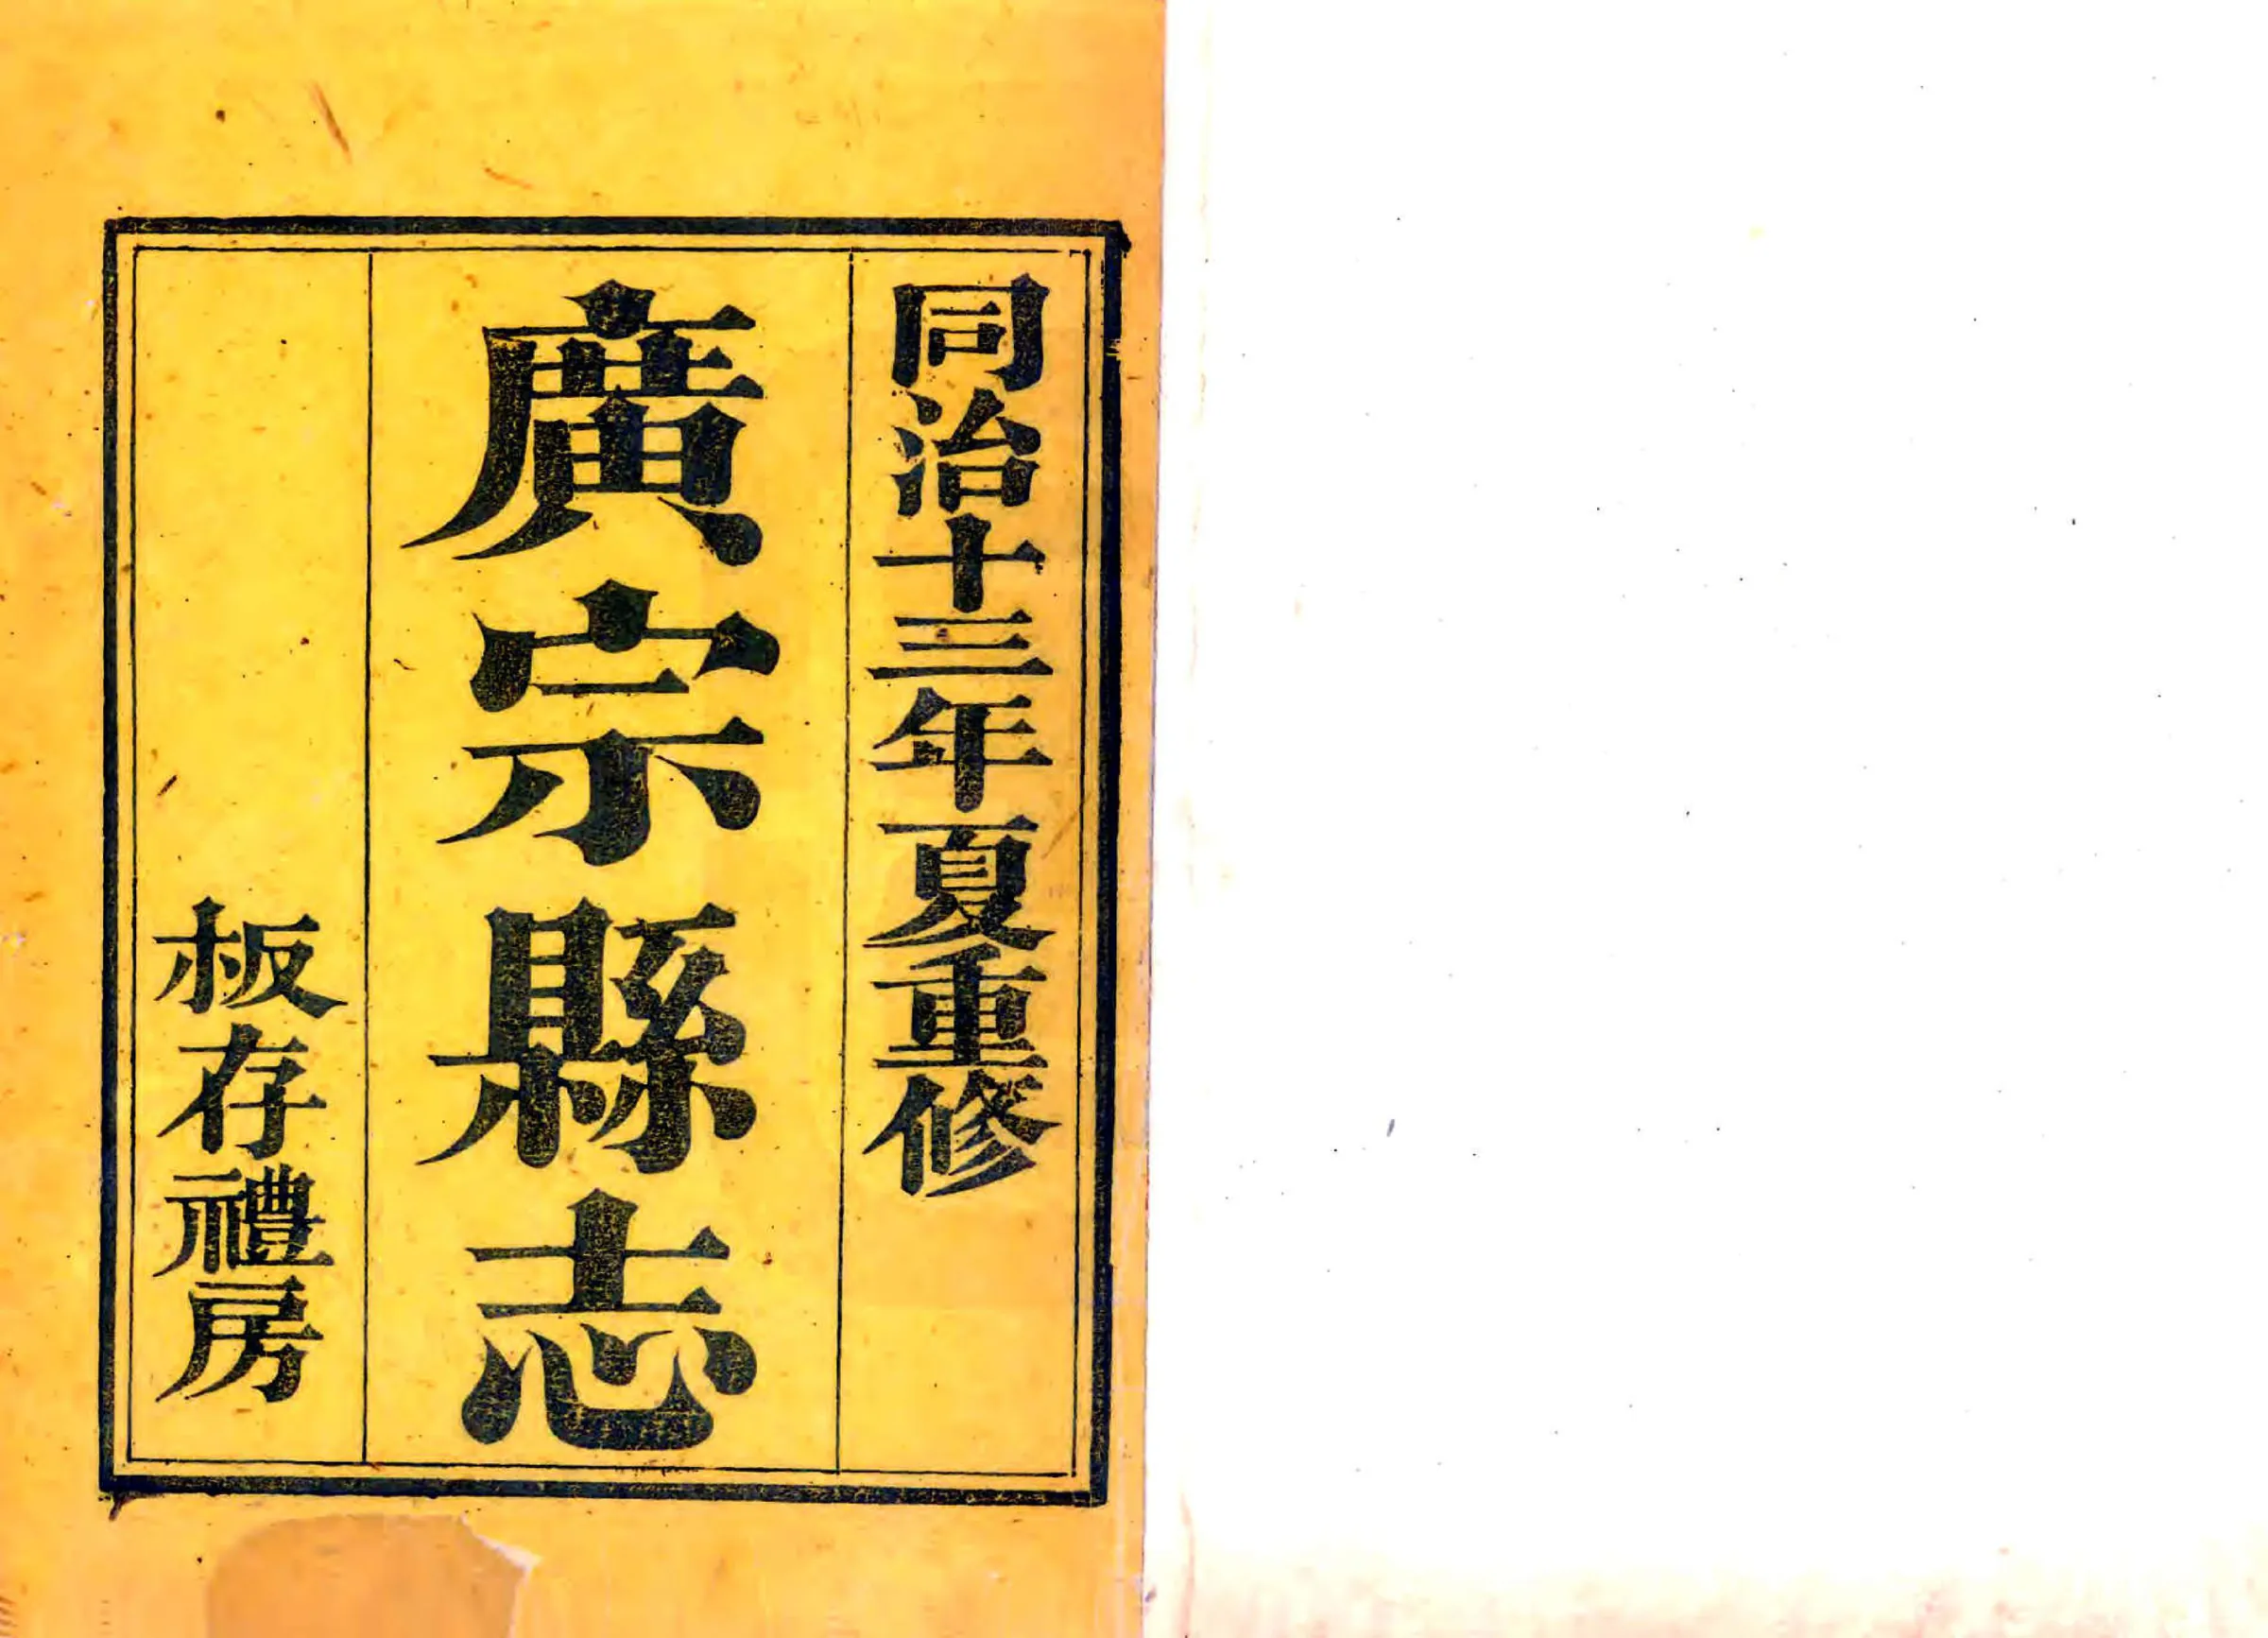 同治十三年夏重修
廣宗縣志
板存禮房